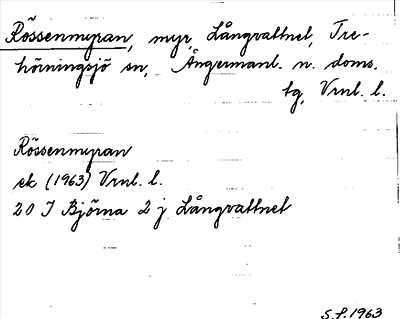 Rössenmyran, myr, Långvattnet, Tre-
hörningsjö sn, Ångermanl. n. doms.
tg, Vrnl. l.
Rössenmyran
ek (1963) Vrnl. l.
20 I Björna 2 j Långvattnet
S.f. 1963